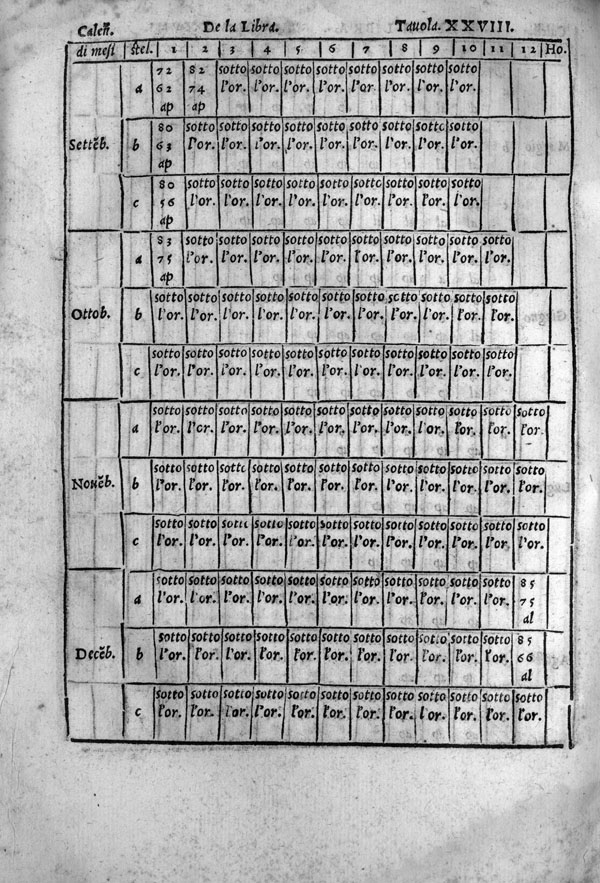 Caleñ. De la Libra. Tauola. XXVIII.
di mesi stel. 1 2 3 4 5 6 7 8 9 10 11 12 Ho.
72 82 sotto sotto sotto sotto sotto sotto sotto sotto
a 62 74 l'or. l'or. l'or. l'or. l'or. l'or. l'or. l'or.
ap ap
80 sotto sotto sotto sotto sotto sotto sotto sotto sotto
Settẽb. b 63 l'or. l'or. l'or. l'or. l'or. l'or. l'or. l'or. l'or.
ap
80 sotto sotto sotto sotto sotto sotto sotto sotto sotto
c 56 l'or. l'or. l'or. l'or. l'or. l'or. l'or. l'or. l'or.
ap
83 sotto sotto sotto sotto sotto sotto sotto sotto sotto sotto
a 75 l'or. l'or. l'or. l'or. l'or. l'or. l'or. l'or. l'or. l'or.
ap
sotto sotto sotto sotto sotto sotto sotto sotto sotto sotto sotto
Ottob. b l'or. l'or. l'or. l'or. l'or. l'or. l'or. l'or. l'or. l'or. l'or.
sotto sotto sotto sotto sotto sotto sotto sotto sotto sotto sotto
c l'or. l'or. l'or. l'or. l'or. l'or. l'or. l'or. l'or. l'or. l'or.
sotto sotto sotto sotto sotto sotto sotto sotto sotto sotto sotto sotto
a l'or. l'or. l'or. l'or. l'or. l'or. l'or. l'or. l'or. l'or. l'or. l'or.
sotto sotto sotto sotto sotto sotto sotto sotto sotto sotto sotto sotto
Nouẽb. b l'or. l'or. l'or. l'or. l'or. l'or. l'or. l'or. l'or. l'or. l'or. l'or.
sotto sotto sotto sotto sotto sotto sotto sotto sotto sotto sotto sotto
c l'or. l'or. l'or. l'or. l'or. l'or. l'or. l'or. l'or. l'or. l'or. l'or.
sotto sotto sotto sotto sotto sotto sotto sotto sotto sotto sotto 85
a l'or. l'or. l'or. l'or. l'or. l'or. l'or. l'or. l'or. l'or. l'or. 75
al
sotto sotto sotto sotto sotto sotto sotto sotto sotto sotto sotto 85
Decẽb. b l'or. l'or. l'or. l'or. l'or. l'or. l'or. l'or. l'or. l'or. l'or. 66
al
sotto sotto sotto sotto sotto sotto sotto sotto sotto sotto sotto sotto
c l'or. l'or. l'or. l'or. l'or. l'or. l'or. l'or. l'or. l'or. l'or. l'or.